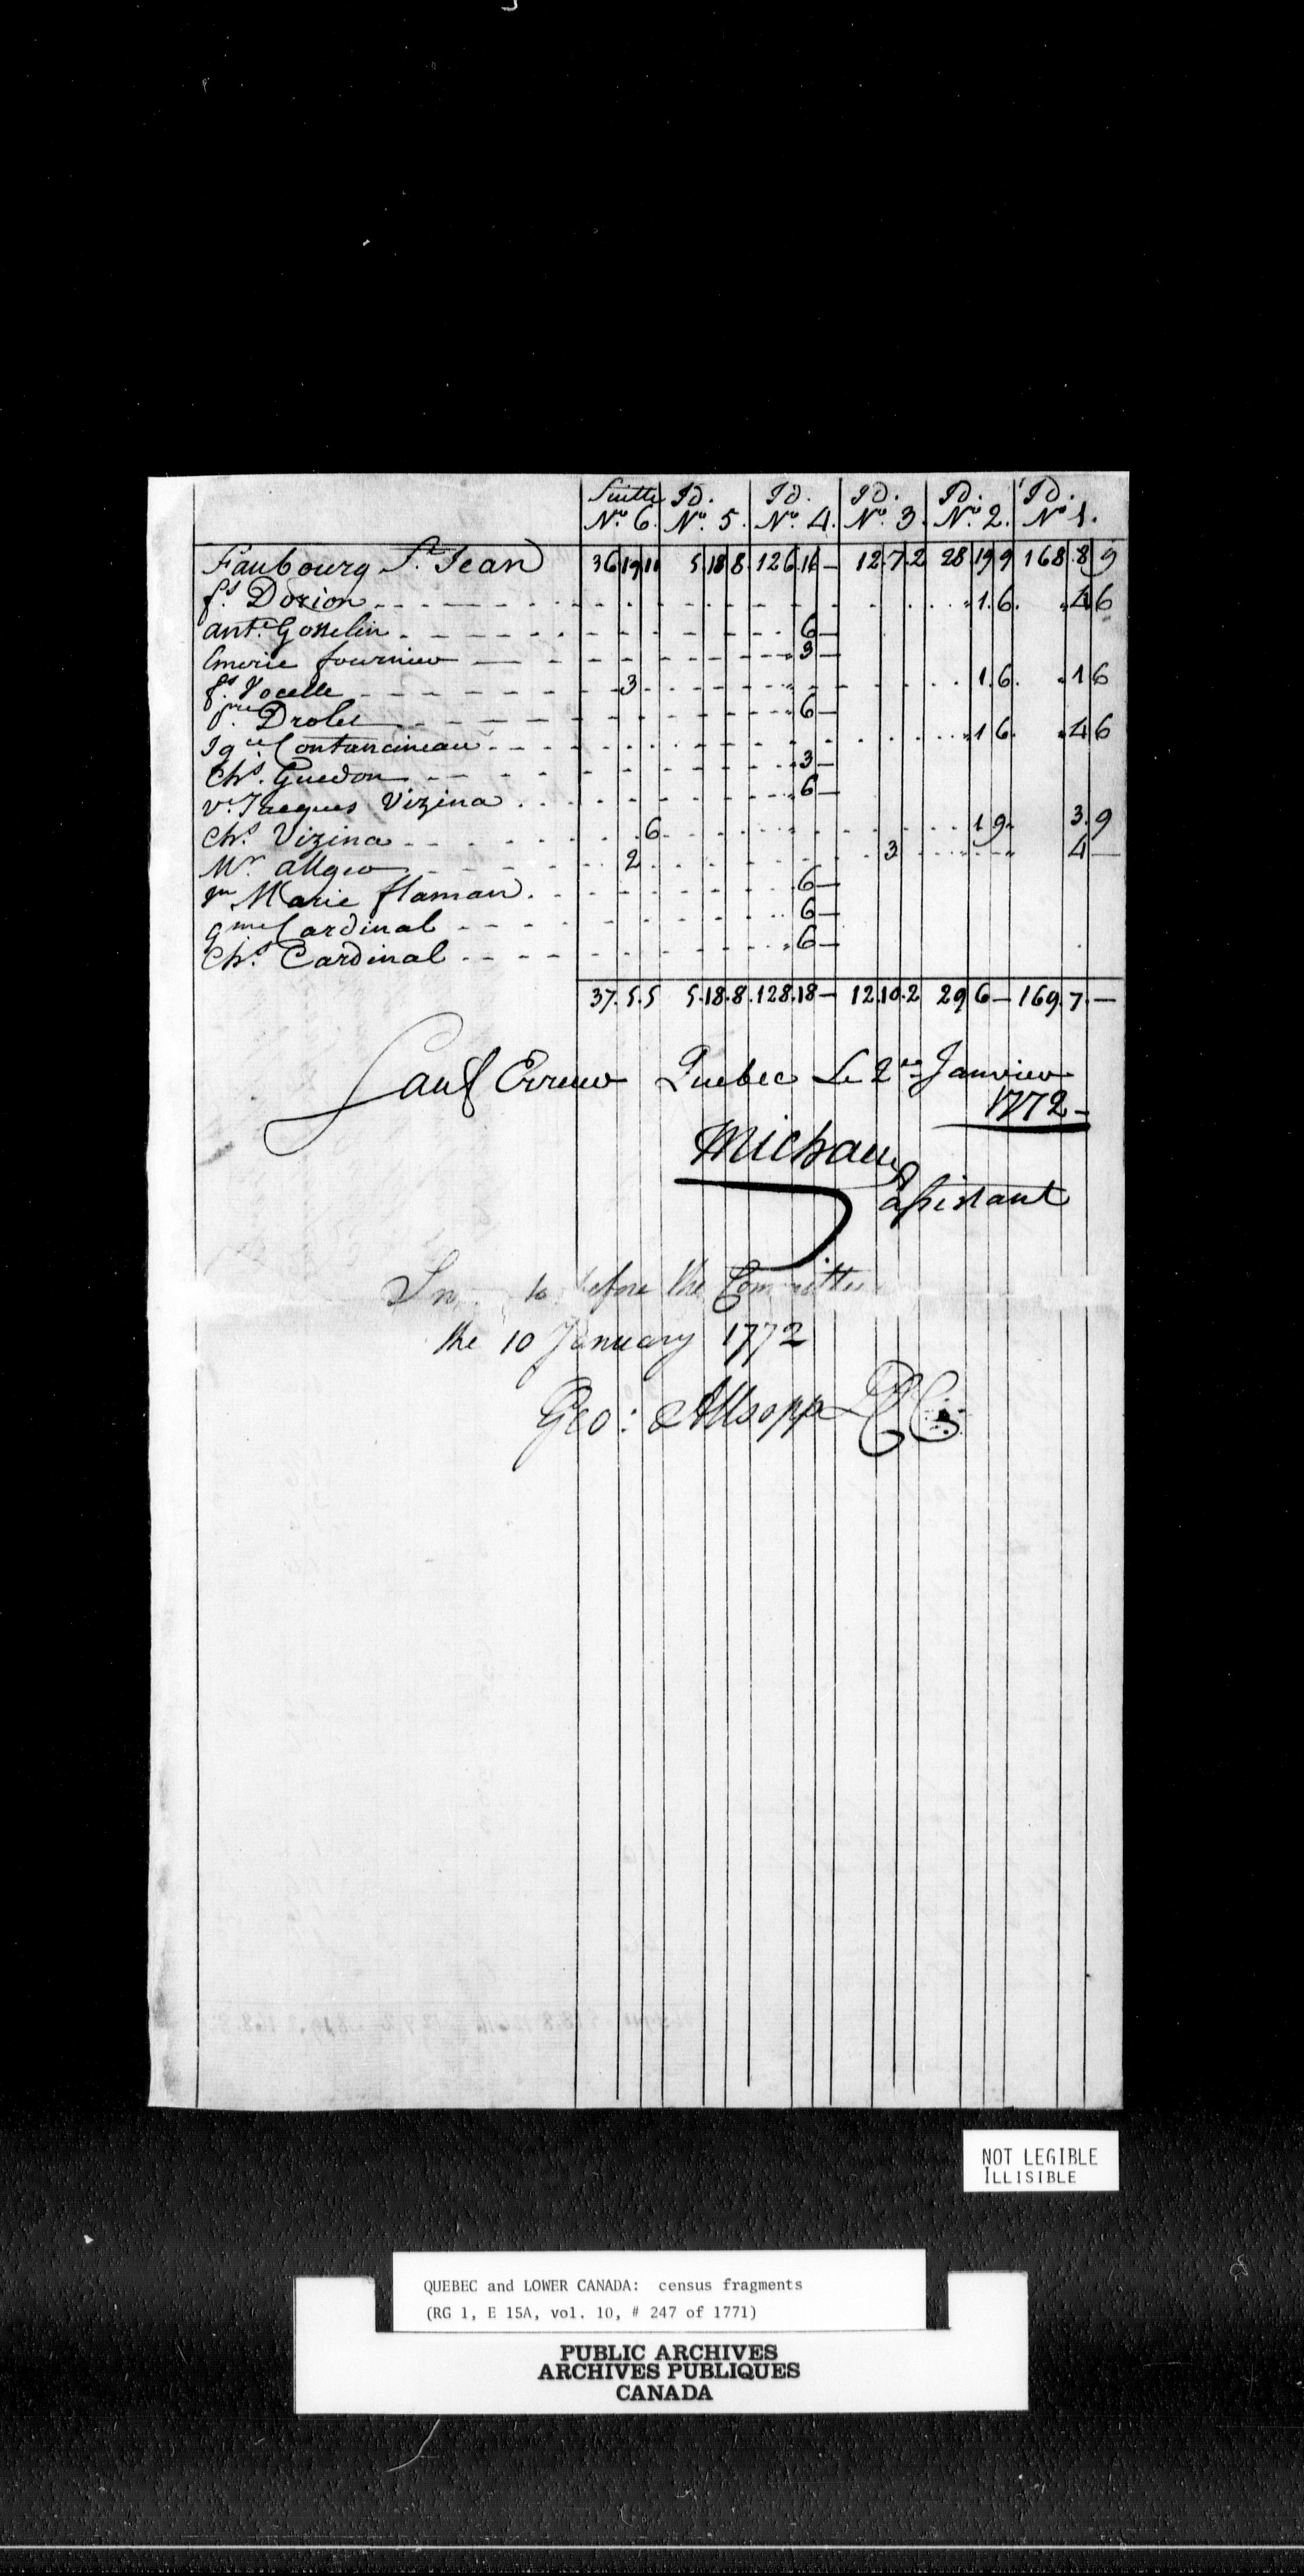 Suitte Id. Id. Id. Id. Id.
No. 6. No. 5. No. 4. No. 3. No. 2. No 1.
Faubourg St. Jean 36 19 11 5.18 8. 126.16 — 12.7.2 28 19 9 168.8 9
fs. Dorion 1.6. 4 6
ant.e Gosselin 6 —
Emerie fournier 3 —
fs. Vocelle 3 1.6. 1 6
pre. Drolet 6 —
Igce. Contancineau 1 6. 4 6
Chs. Guedon 3 —
ve. Jacques Vizina 6 —
Chs. Vizina 6 1 9 3.9
Mr. allgeo 2 3 4 —
Marie flaman 6 —
gme Cardinal 6 —
Chs. Cardinal 6 —
37.5.5 5.18.8. 128.18 — 12 10.2 29 6 — 169.7 —
Sauf Erreur Quebec Le 2me Janvier
1772 –
Michau
assistant
to before the Committee
the 10 January 1772
Geo: Allsopp DCC
NOT LEGIBLE
ILLISIBLE
QUEBEC and LOWER CANADA: census fragments
(RG 1, E 15A, vol. 10, # 247 of 1771)
PUBLIC ARCHIVES
ARCHIVES PUBLIQUES
CANADA